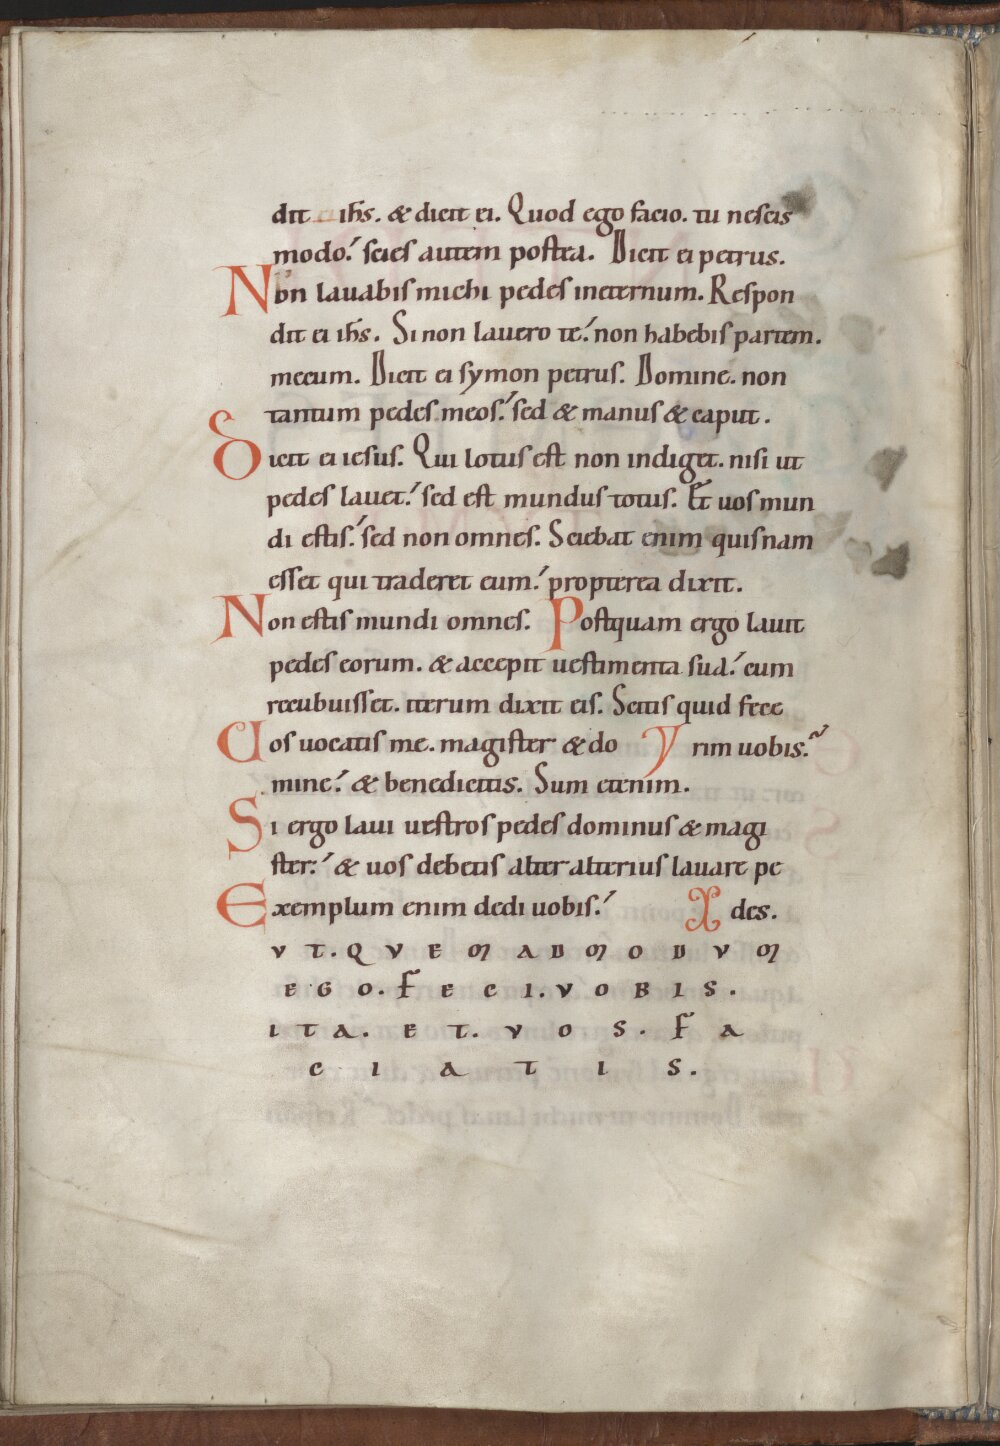 dit ihs. & dicit ei. Quod ego facio. tu nescis
modo. scies autem postea. Dicit ei petrus.
Non lavabis michi pedes ineternum. Respon
dit ei ihs. Si non lavero te. non habebis partem.
mecum. Dicit ei symon petrus. Domine. non
tantum pedes meos. sed & manus & caput.
Dicit ei iesus. Qui lotus est non indiget. nisi ut
pedes lavet. sed est mundus totus. Et uos mun
di estis. sed non omnes. Sciebat enim quisnam
esset qui traderet eum. propterea dixit.
Non estis mundi omnes. Postquam ergo lauit
pedes eorum. & accepit uestimenta sua. cum
recubuisset. iterum dixit eis. Scitis quid fece
Uos uocatis me. magister & do rim uobis.
mine. & benedicitis. Sum etenim.
Si ergo laui uestros pedes dominus & magi
ster. & uos debetis alter alterius lauare pe
Exemplum enim dedi uobis. des.
VT. QVEMABMODUM
EGO. FECI. VOBIS.
ITA. ET. VOS. FA
CIATIS.